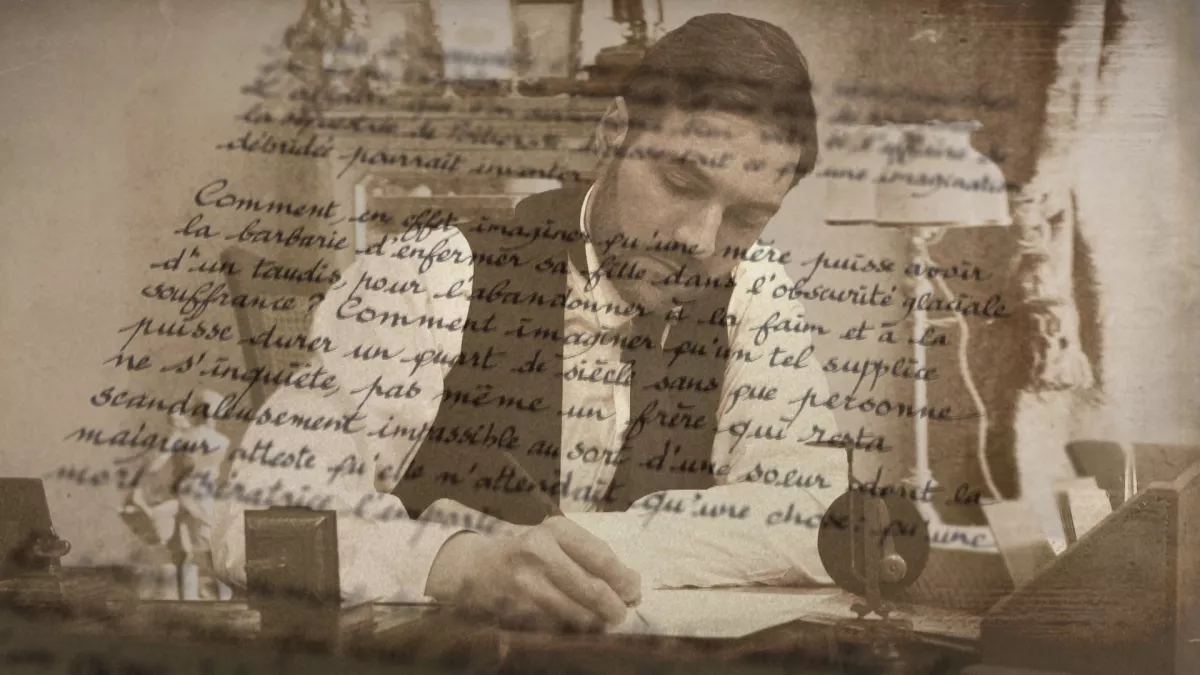 la séquestrée de Poitiers
débridée pourrait inventer une imagination
Comment, en effet imaginer qu'une mère puisse avoir
la barbarie d'enfermer sa fille dans l'obscurité glaciale
d'un taudis, pour l'abandonner à la faim et à la
souffrance ? Comment imaginer qu'un tel supplice
puisse durer un quart de siècle sans que personne
ne s'inquiète, pas même un frère qui resta
scandaleusement impassible au sort d'une soeur dont la
maigreur atteste qu'elle n'attendait qu'une chose : qu'une
mort libératrice l'emporte